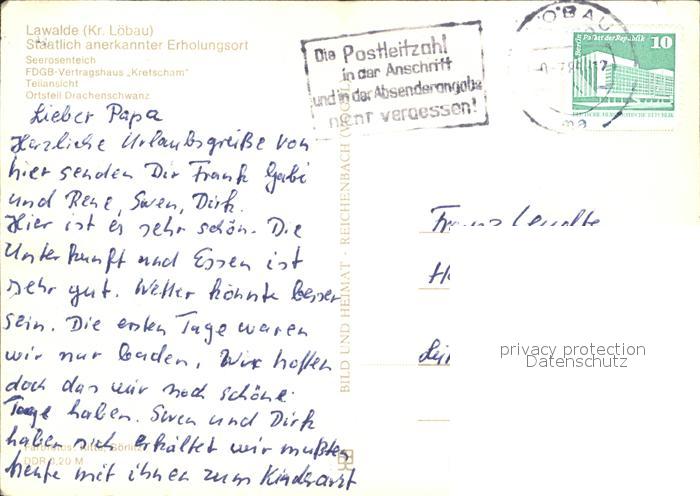 Lawalde (Kr. Löbau)
Staatlich anerkannter Erholungsort
Seerosenteich
FDGB-Vertragshaus „Kretscham"
Teilansicht
Ortsteil Drachenschwanz
Lieber Papa
Herzliche Urlaubsgrüße von
hier senden Dir Frank Gabi
und Rene, Swen, Dirk.
Hier ist es sehr schön. Die
Unterkunft und Essen ist
sehr gut. Wetter könnte besser
sein. Die ersten Tage waren
wir nur baden. Wir hoffen
doch das wir noch schöne
Tage haben. Swen und Dirk
haben sich erkältet wir mußten
heute mit ihnen zum Kinderarzt
DDR 0,20 M
BILD UND HEIMAT · REICHENBACH
Die Postleitzahl
in der Anschrift
und in der Absenderangabe
nicht vergessen!
LÖBAU
Berlin Palast der Republik 10
DEUTSCHE DEMOKRATISCHE REPUBLIK
Franz
privacy protection
Datenschutz